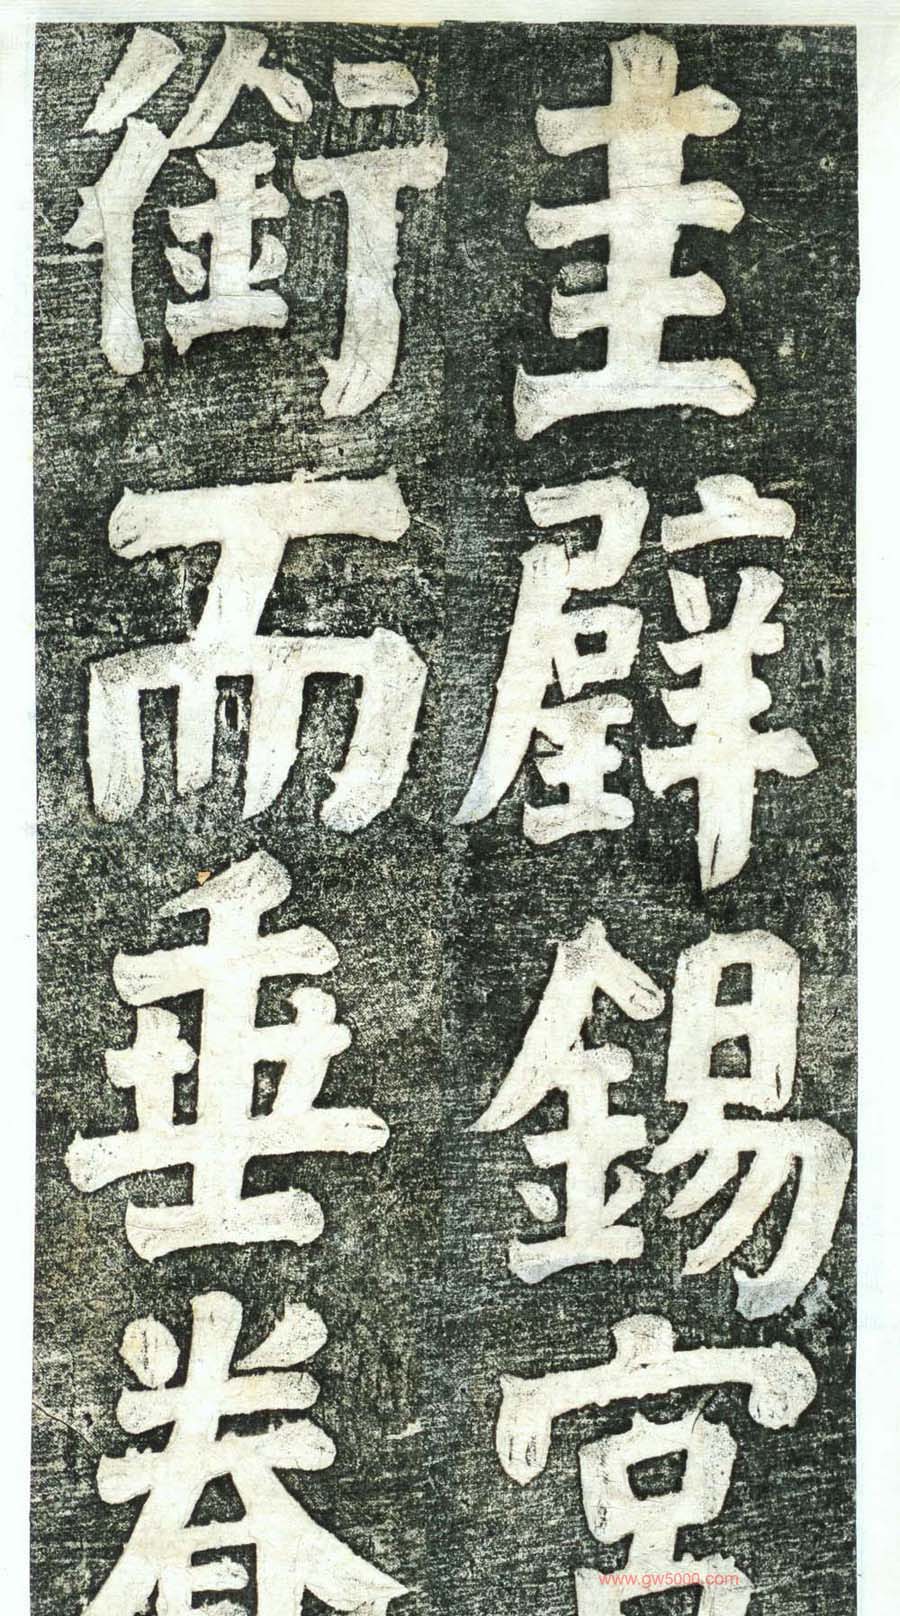 圭璧錫宮
銜而垂眷
www.gw5000.com